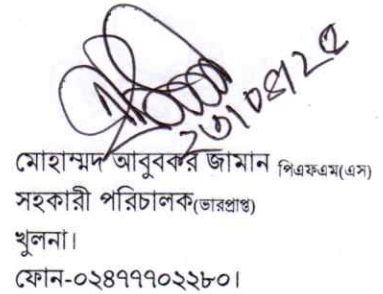 ২৩/০৪/২৫
মোহাম্মদ আবুবকর জামান পিএফএম(এস)
সহকারী পরিচালক(ভারপ্রাপ্ত)
খুলনা।
ফোন-০২৪৭৭৭০২২৮০।